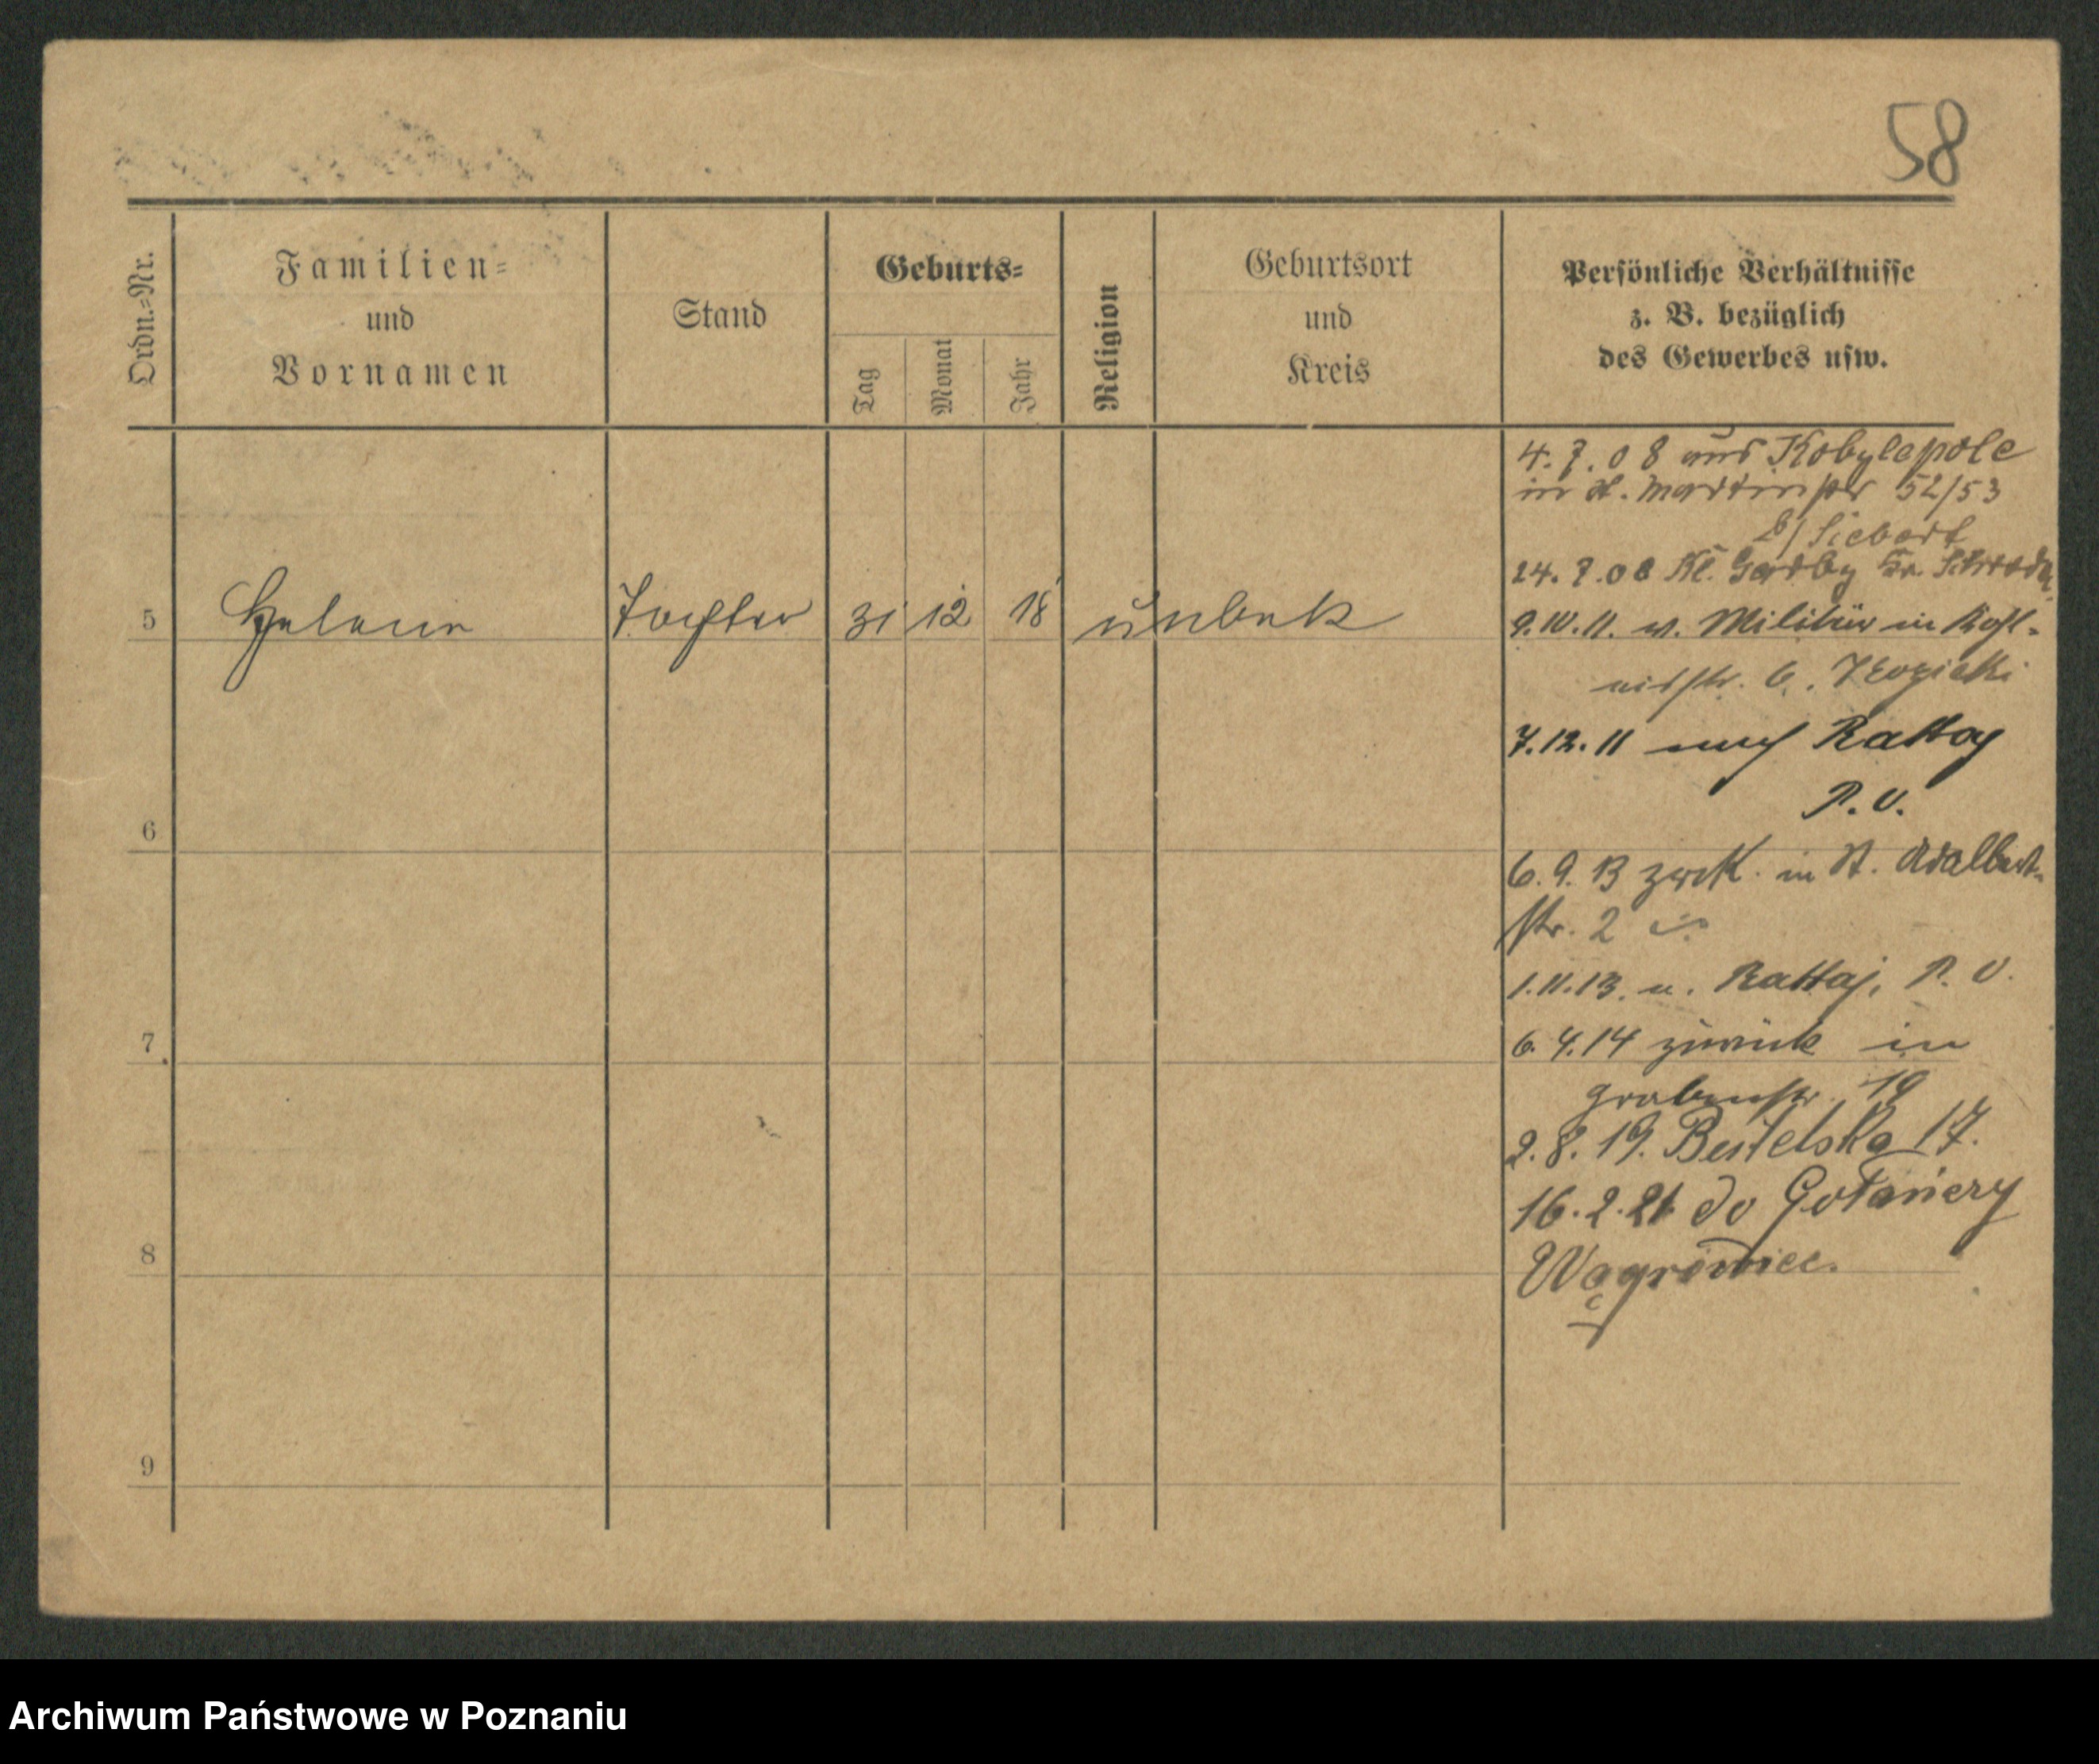 58
Ordn.-Nr.
Familien-
und
Vornamen
Stand
Geburts-
Tag
Monat
Jahr
Religion
Geburtsort
und
Kreis
Persönliche Verhältnisse
z. B. bezüglich
des Gewerbes usw.
5 Helene Tochter 31 12 18 unbek
6
7
8
9
4.7.08 aus Kobylepole
in St. Martinstr 52/53
b/Siebert
24.7.08 Kl. Kr. Schroda
9.10.11. v. Militär in
str. 6.
7.12.11 nach Rattay
P. U.
6.9.13 zurck. in St. Adalbert-
str. 2
1.11.13. n. Rattaj, P. U.
6.4.14 zurück in
Grabenstr. 19
2.8.19. 17.
16.2.21 do Gołańczy
Wągrówiec.
Archiwum Państwowe w Poznaniu